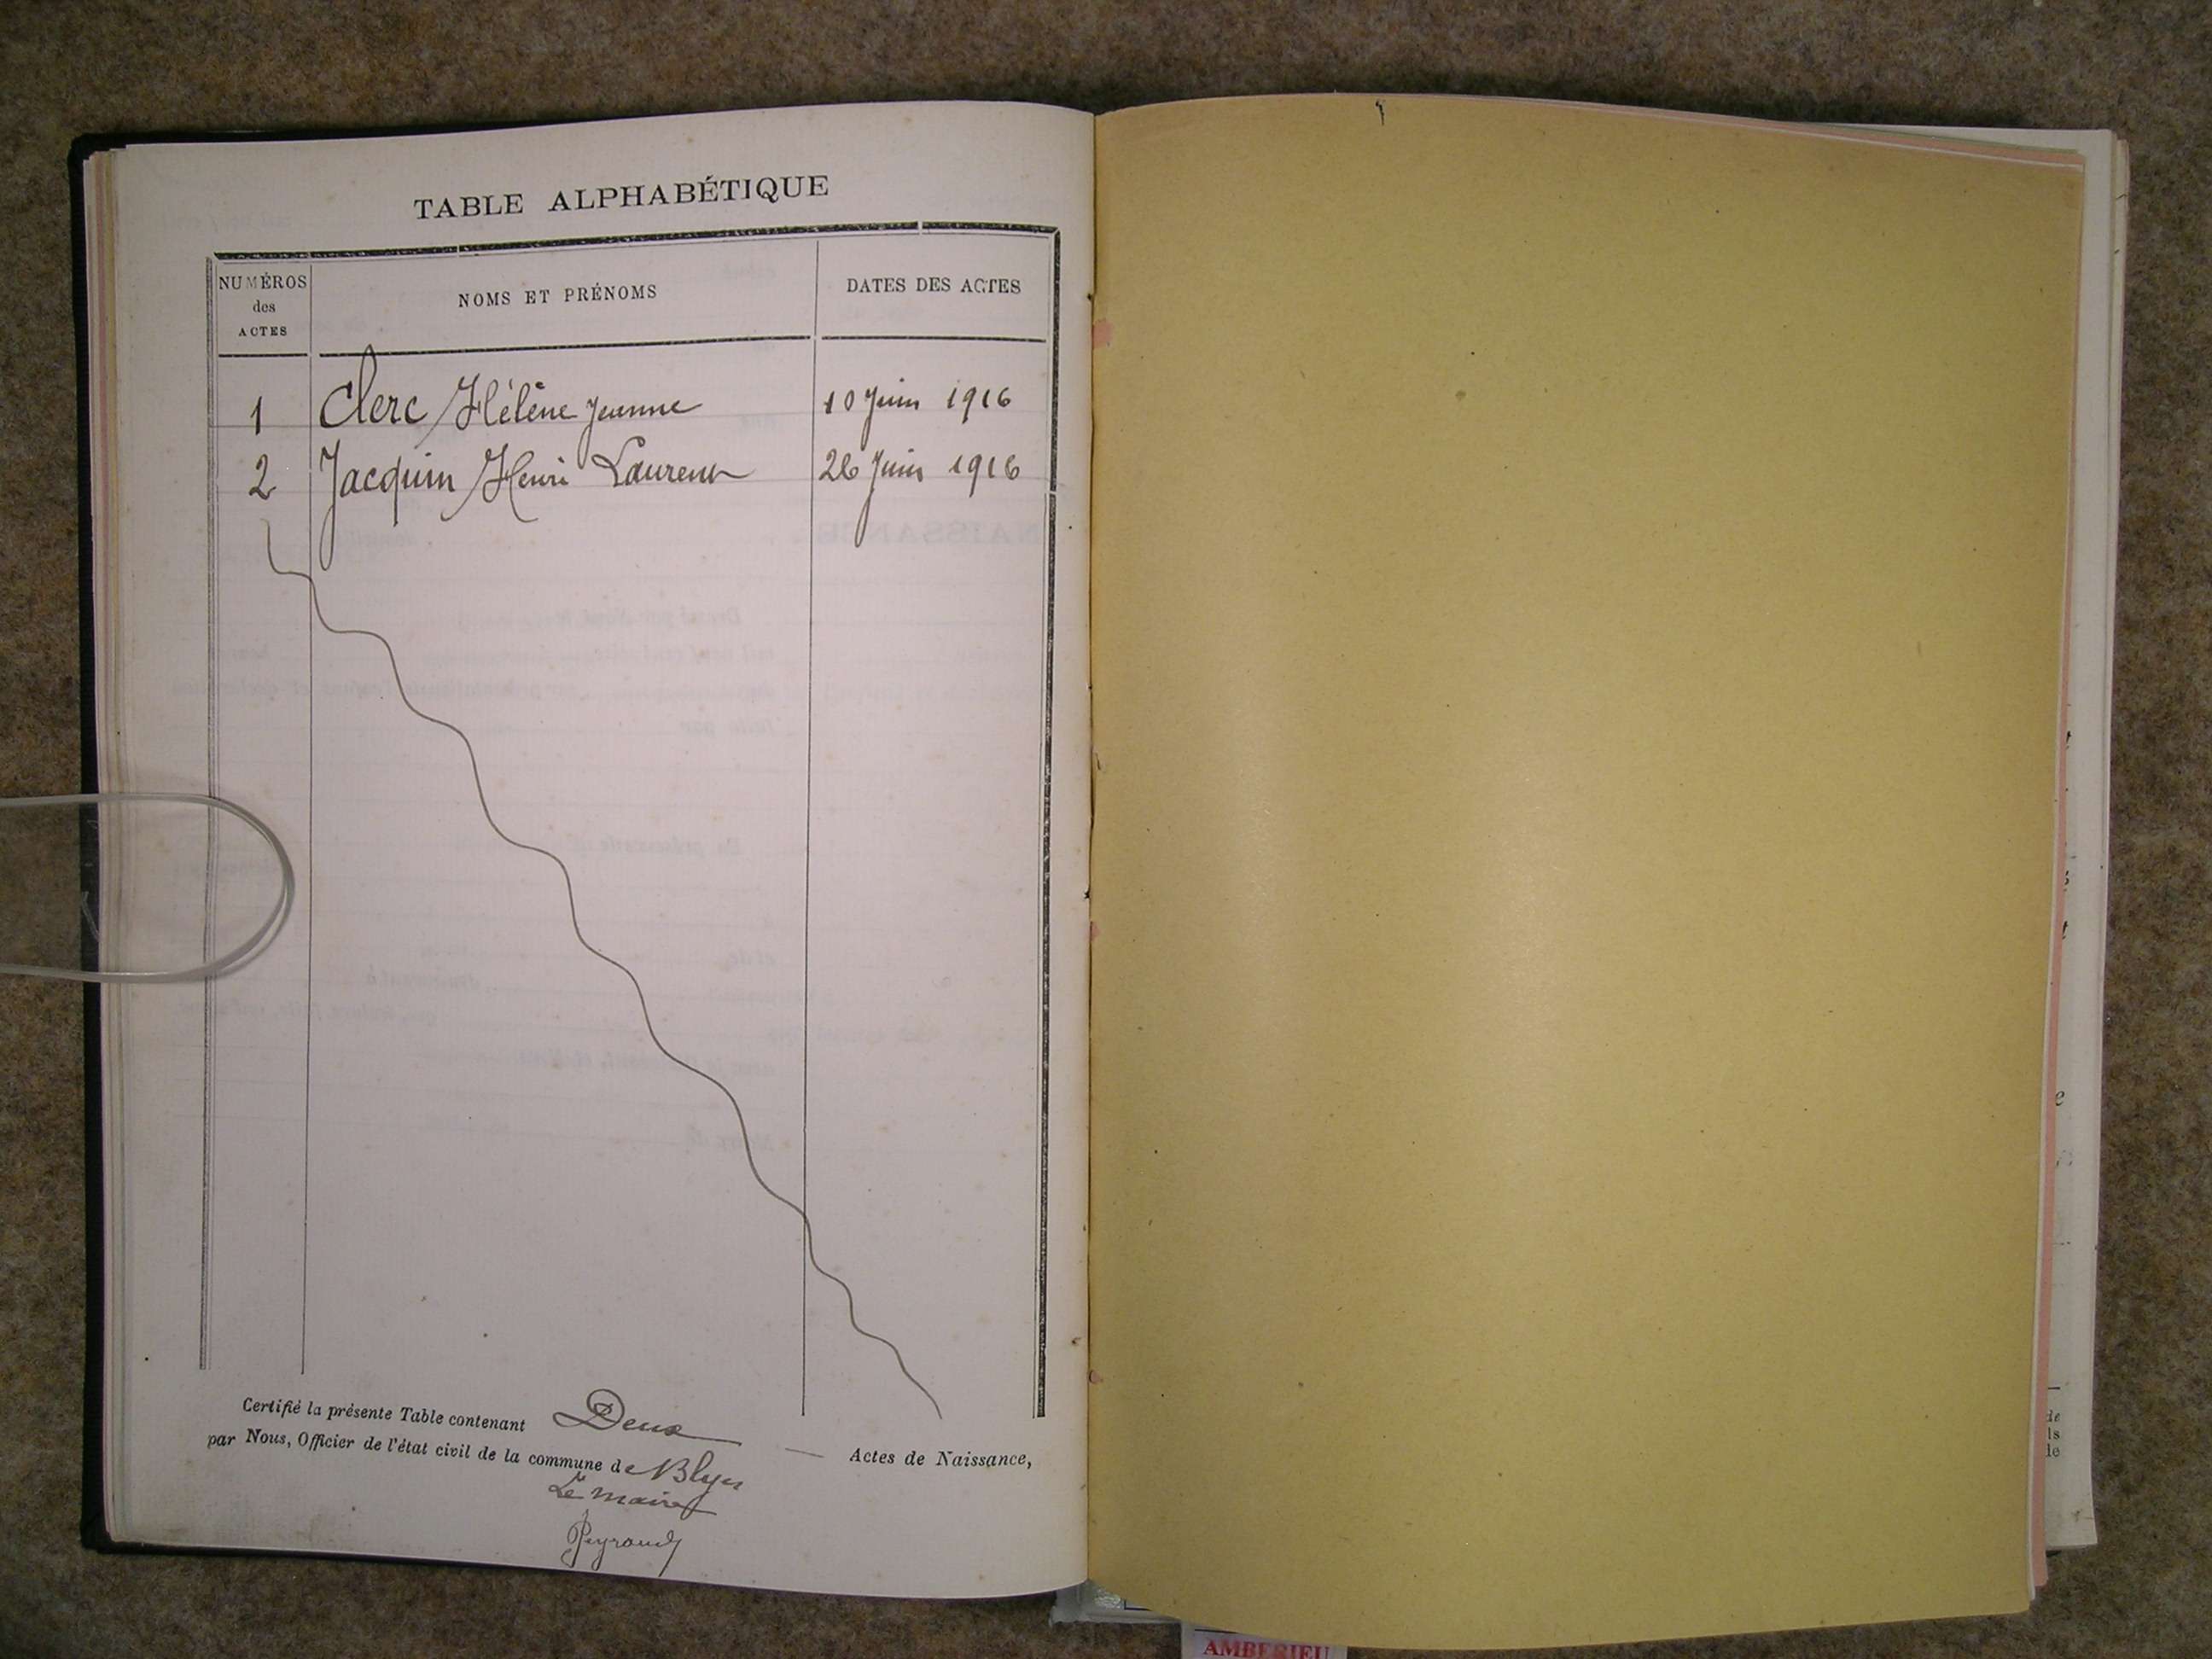 TABLE ALPHABÉTIQUE
NUMÉROS
des
ACTES
NOMS ET PRÉNOMS
DATES DES ACTES
1 Clerc Hélène Jeanne 10 Juin 1916
2 Jacquin Henri Laurent 26 Juin 1916
Certifié la présente Table contenant Deux — Actes de Naissance,
par Nous, Officier de l'état civil de la commune de Blyes
Le maire
Peyraud
AMBERIEU